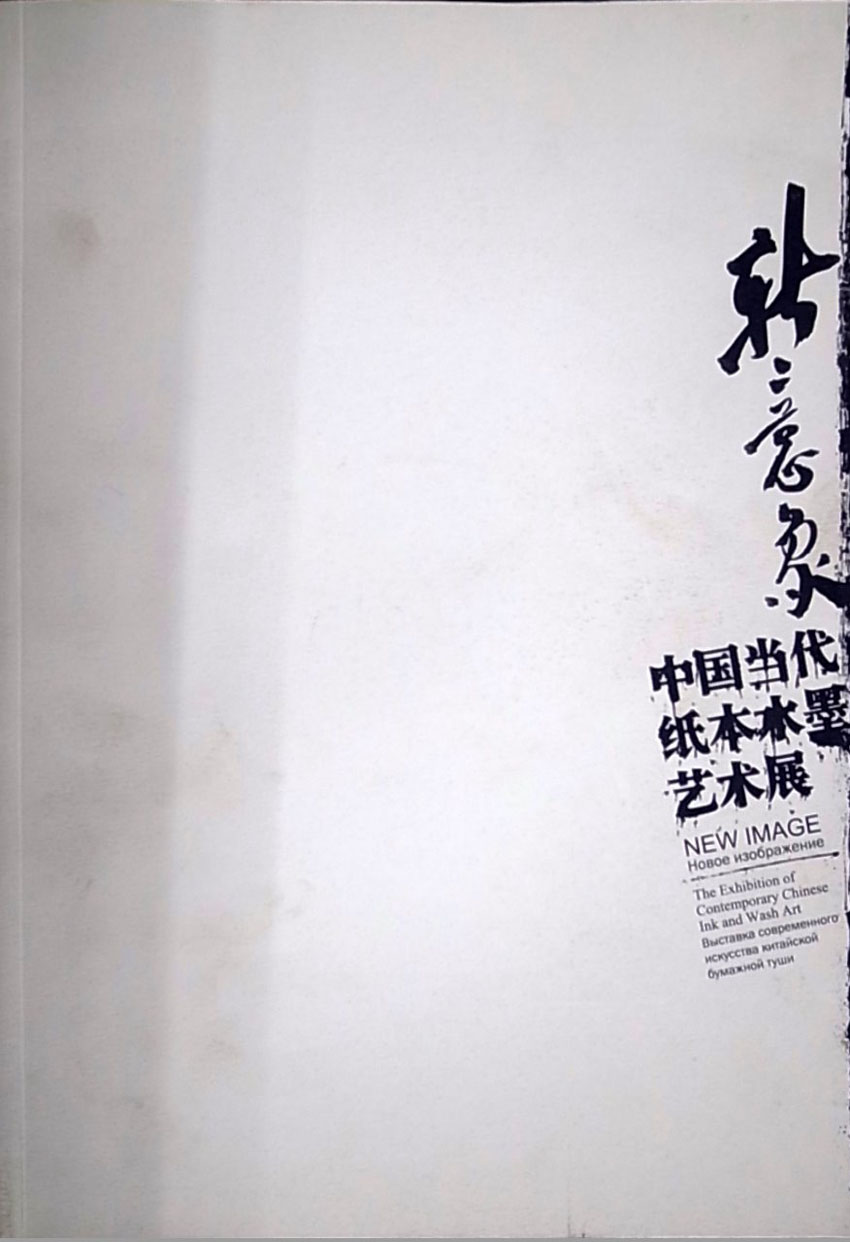 新意象
中国当代
纸本水墨
艺术展
NEW IMAGE
Новое изображение
The Exhibition of
Contemporary Chinese
Ink and Wash Art
Выставка современного
искусства китайской
бумажной туши